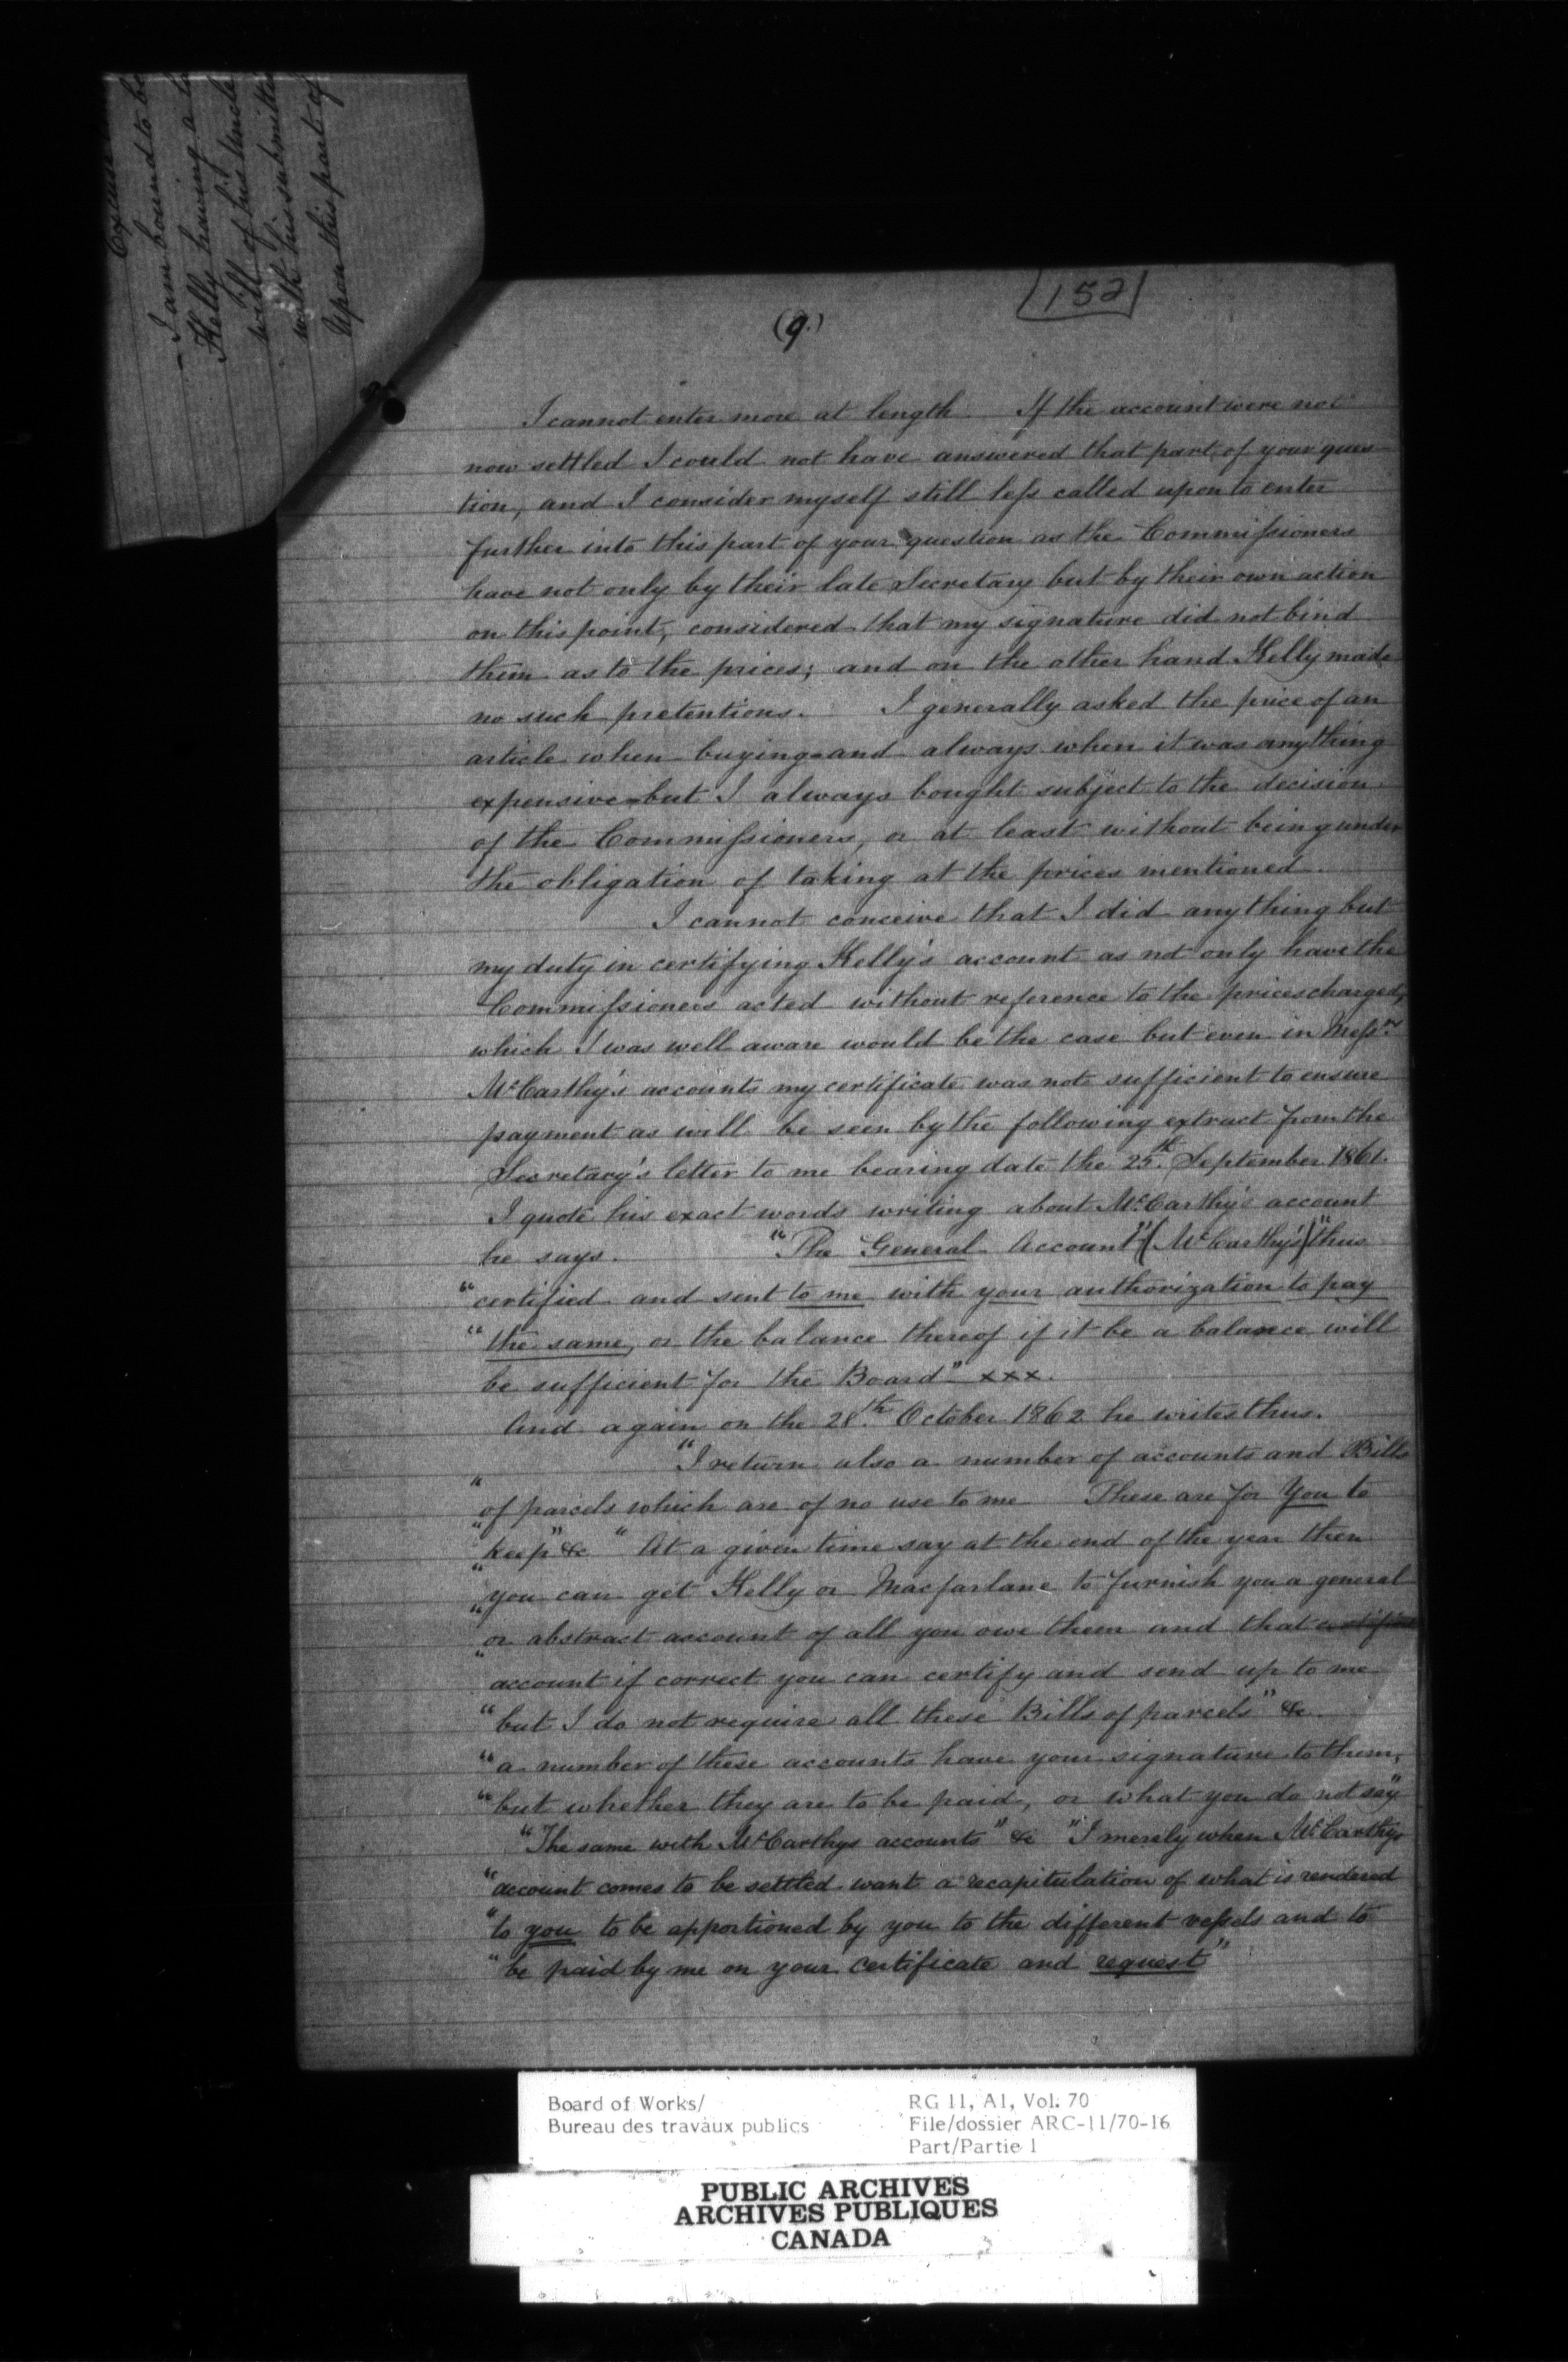 Excuse
- I am bound to be
Kelly having a
will of his Uncle
with his submitte
Upon this part of
152
(9.)
I cannot enter more at length. If the account were not
now settled I could not have answered that part of your ques
tion, and I consider myself still less called upon to enter
further into this part of your question as the Commissioners
have not only by their late Secretary but by their own action
on this point, considered that my signature did not bind
them as to the prices; and on the other hand Kelly made
no such pretentions. I generally asked the price of an
article when buying - and always when it was anything
expensive - but I always bought subject to the decision
of the Commissioners, or at least without being under
the obligation of taking at the prices mentioned.
I cannot conceive that I did anything but
my duty in certifying Kelly's account as not only have the
Commissioners acted without reference to the prices charged,
which I was well aware would be the case but even in Messrs
McCarthy's accounts my certificate was not sufficient to ensure
payment as will be seen by the following extract from the
Secretary's letter to me bearing date the 25th September 1861.
I quote his exact words writing about McCarthy's account
he says. "The General Account" (McCarthy's) "thus
"certified and sent to me with your authorization to pay
"the same, or the balance thereof if it be a balance will
be sufficient for the Board" xxx.
And again on the 28th October 1862 he writes thus.
"I return also a number of accounts and Bills
"of parcels which are of no use to me These are for You to
"keep" &c "At a given time say at the end of the year then
"you can get Kelly or Macfarlane to furnish you a general
"or abstract account of all you owe them and that
"account if correct you can certify and send up to me
"but I do not require all these Bills of parcels" &c.
"a number of these accounts have your signature to them,
"but whether they are to be paid, or what you do not say"
"The same with McCarthys accounts" &c "I merely when McCarthys
"account comes to be settled want a recapitulation of what is rendered
"to you to be apportioned by you to the different vessels and to
"be paid by me on your certificate and request"
Board of Works/
Bureau des travaux publics
RG 11, A1, Vol. 70
File/dossier ARC-11/70-16
Part/Partie 1
PUBLIC ARCHIVES
ARCHIVES PUBLIQUES
CANADA